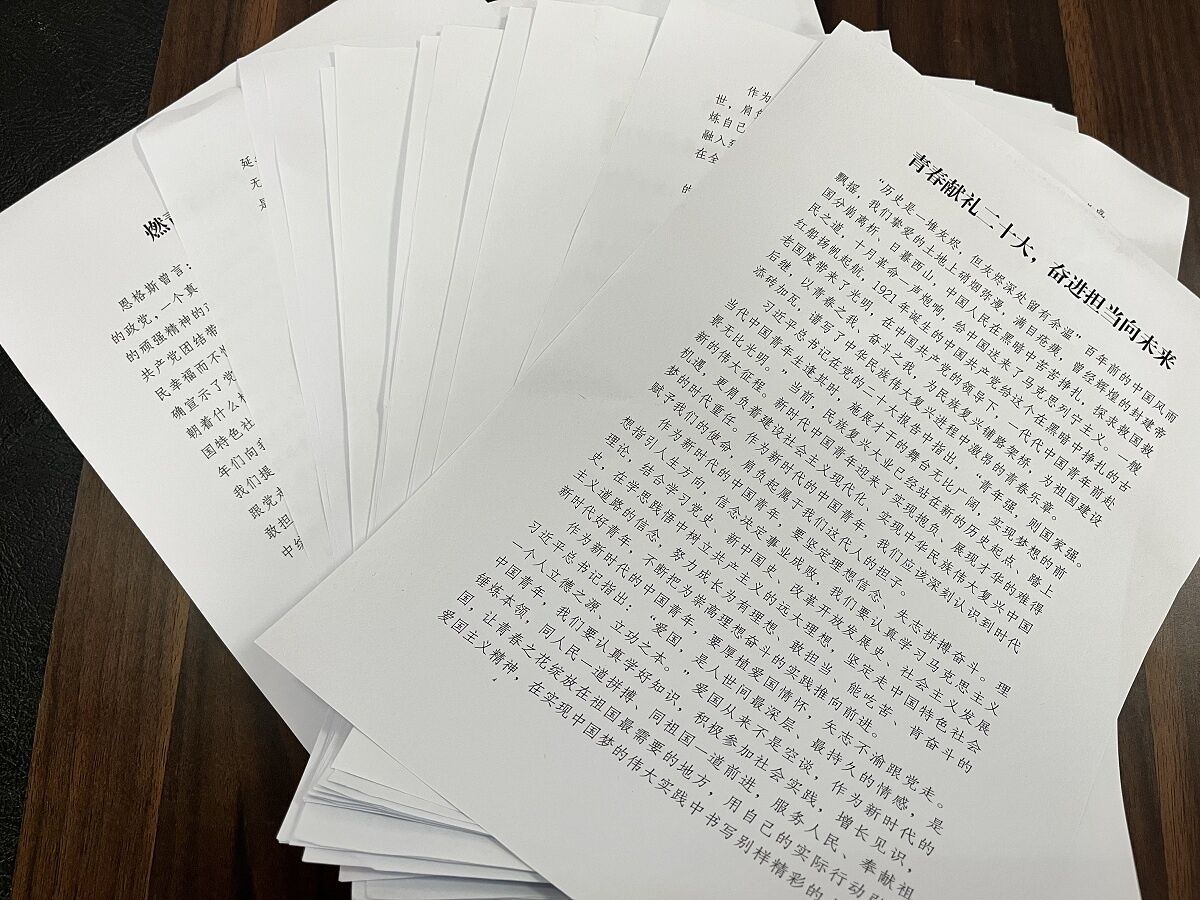 燃
恩格斯曾言：
的政党，一个真
的顽强精神的
共产党团结带
民幸福而不
确宣示了党
朝着什么
国特色社
年们向
我们提
跟党
敢担
中
延
无
是
作为
世，肩
炼自己
融入
在全
的
青春献礼二十大，奋进担当向未来
“历史是一堆灰烬，但灰烬深处留有余温”百年前的中国风雨
飘摇，我们挚爱的土地上硝烟弥漫，满目疮痍，曾经辉煌的封建帝
国分崩离析、日暮西山，中国人民在黑暗中苦苦挣扎，探求救国救
民之道，十月革命一声炮响，给中国送来了马克思列宁主义。一艘
红船扬帆起航，1921年诞生的中国共产党给这个在黑暗中挣扎的古
老国度带来了光明，在中国共产党的领导下，一代代中国青年前赴
后继，以青春之我、奋斗之我，为民族复兴铺路架桥，为祖国建设
添砖加瓦，谱写了中华民族伟大复兴进程中激昂的青春乐章。
习近平总书记在党的二十大报告中指出，“青年强，则国家强。
当代中国青年生逢其时，施展才干的舞台无比广阔，实现梦想的前
景无比光明。”当前，民族复兴大业已经站在新的历史起点、踏上
新的伟大征程。新时代中国青年迎来了实现抱负、展现才华的难得
机遇，更肩负着建设社会主义现代化、实现中华民族伟大复兴中国
梦的时代重任。作为新时代的中国青年，我们应该深刻认识到时代
赋予我们的使命，肩负起属于我们这代人的担子。
作为新时代的中国青年，要坚定理想信念、失志拼搏奋斗。理
想指引人生方向，信念决定事业成败，我们要认真学习马克思主义
理论，结合学习党史、新中国史、改革开放发展史、社会主义发展
史，在学思践悟中树立共产主义的远大理想，坚定走中国特色社会
主义道路的信念，努力成长为有理想、敢担当、能吃苦、肯奋斗的
新时代好青年，不断把为崇高理想奋斗的实践推向前进。
作为新时代的中国青年，要厚植爱国情怀，矢志不渝跟党走。
习近平总书记指出：“爱国，是人世间最深层、最持久的情感，是
一个人立德之源、立功之本。”爱国从来不是空谈，作为新时代的
中国青年，我们要认真学好知识，积极参加社会实践，增长见识，
锤炼本领，同人民一道拼搏、同祖国一道前进，服务人民、奉献祖
国，让青春之花绽放在祖国最需要的地方，用自己的实际行动
爱国主义精神，在实现中国梦的伟大实践中书写别样精彩的